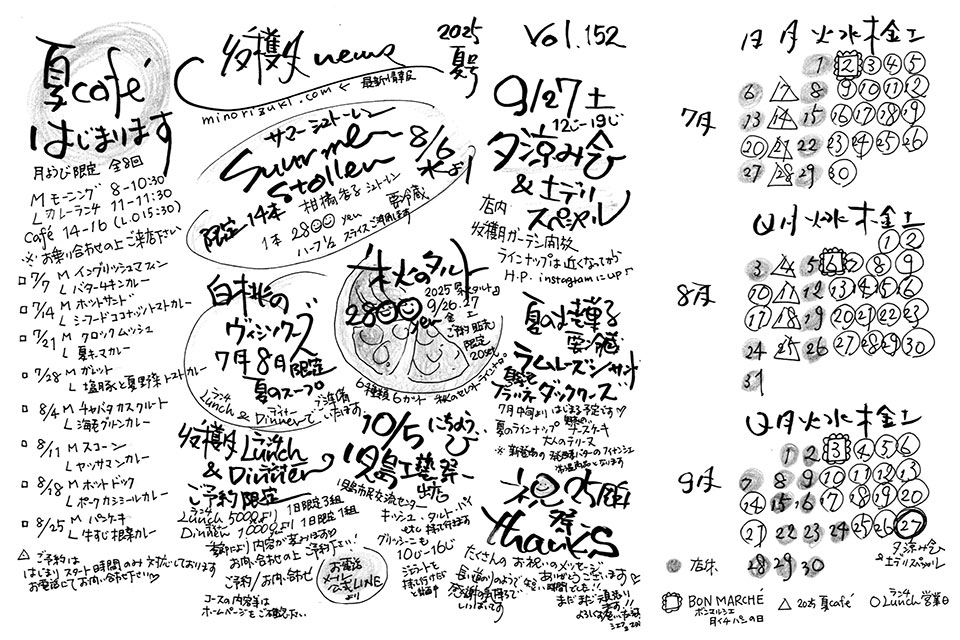 夏café
はじまります
月ようび限定 全8回
M モーニング 8-10:30
L カレーランチ 11-11:30
Café 14-16 (L.O 15:30)
※お乗り合わせの上ご来店下さい
□ 7/7 M イングリッシュマフィン
L バターチキンカレー
□ 7/14 M ホットサンド
L シーフードココナッツトマトカレー
□ 7/21 M クロックムッシュ
L 夏キーマカレー
□ 7/28 M ガレット
L 塩豚と夏野菜トマトカレー
□ 8/4 M チャバタカスクルト
L 海老グリーンカレー
□ 8/11 M スコーン
L ヤッサマンカレー
□ 8/18 M ホットドック
L ポークカシミールカレー
□ 8/25 M パンケーキ
L 牛すじ根菜カレー
△ ご予約は
はじまりスタート時間のみ対応しております
お電話にてお問い合わせ下さい♡
穫月 news
2025
夏号
minorizuki.com ← 最新情報
サマーシュトーレン
Summer
Stollen
8/6
水より
限定14本 柑橘杏子シュトーレン
1本 2800 yen 要冷蔵
ハーフ1/2 スライスご用意します
白桃の
ヴィシソワーズ
7月8日限定
夏のスープ
ランチ Lunch & ディナー Dinnerで
いただけます
秋のタルト
2800 yen
2025
9/26.27
金 土
ご予約販売
限定
20set
6種類6カット 秋のセレクトラインナップ
穫月 ランチ Lunch
& ディナー Dinner
ご予約限定
ランチ Lunch 5000より 1日限定3組
ディナー Dinner 10000より 1日限定1組
季節により内容が変わります♡
お問い合わせの上ご予約下さい!
ご予約/お問い合わせ
お電話
メール
公式LINE
より
コースの内容等は
ホームページをご確認下さい
10/5 にちようび
工藝祭
出店
市民交流センター
キッシュ・タルト・パン
etc 持って行きます
グリッシーニも
10じ-16じ
Vol.152
9/27 土
12じ-19じ
夕涼み会
&土デリ
スペシャル
店内
穫月ガーデン開放
ラインナップは近くなってから
H.P. instagramにUP♪
夏の焼菓子
要冷蔵
ラムレーズンサンド
ブラックダッククワーズ
7月中旬より はじまる予定です♡
夏のラインナップ チーズケーキ
大人のテリーヌ
祝25周年
祭
thanks
たくさんの お祝いのメッセージ
ありがとうございます♡
まだまだ頑張ります!!
日 月 火 水 木 金 土
7月
1 2 3 4 5
6 7 8 9 10 11 12
13 14 15 16 17 18 19
20 21 22 23 24 25 26
27 28 29 30
日 月 火 水 木 金 土
8月
1 2
3 4 5 6 7 8 9
10 11 12 13 14 15 16
17 18 19 20 21 22 23
24 25 26 27 28 29 30
31
日 月 火 水 木 金 土
9月
1 2 3 4 5 6
7 8 9 10 11 12 13
14 15 16 17 18 19 20
21 22 23 24 25 26 27
28 29 30
夕涼み会
&土デリスペシャル
店休
BON MARCHÉ
ボンマルシェ
月イチパンの日
△ 2025 夏café
○ ランチ Lunch 営業日